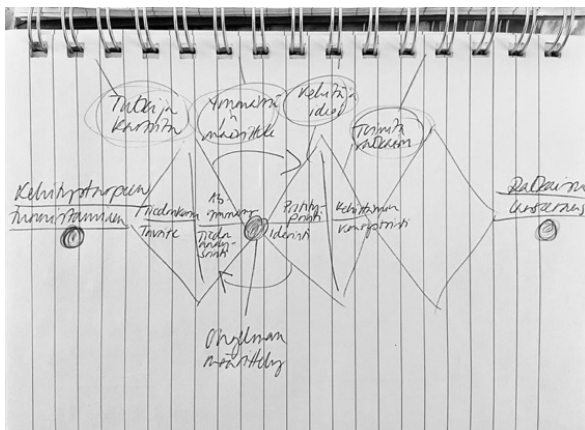 Tutki ja
kartoita
Ymmärrä
ja
määrittele
Kehitä ja
ideoi
Toimita
ratkaisu
Kehitystarpeen
tunnistaminen
Tiedonkeruu
Tavoite
Tiedon
analy-
sointi
Prototy-
pointi
ideointi
Kehittämän
konseptointi
Ratkaisu
Ongelman
määrittely